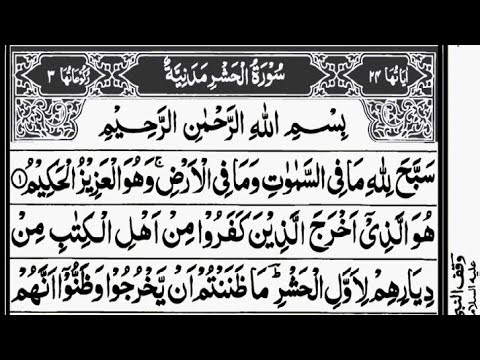 اٰيَاتُهَا ۲۴
سُوْرَةُ الْحَشْرِ مَدَنِيَّةٌ
رُكُوْعَاتُهَا ۳
بِسْمِ اللهِ الرَّحْمٰنِ الرَّحِيْمِ
سَبَّحَ لِلّٰهِ مَا فِى السَّمٰوٰتِ وَمَا فِى الْاَرْضِ ۚ وَهُوَ الْعَزِيْزُ الْحَكِيْمُ ۝۱
هُوَ الَّذِىْٓ اَخْرَجَ الَّذِيْنَ كَفَرُوْا مِنْ اَهْلِ الْكِتٰبِ مِنْ
دِيَارِهِمْ لِاَوَّلِ الْحَشْرِ ؕ مَا ظَنَنْتُمْ اَنْ يَّخْرُجُوْا وَظَنُّوْٓا اَنَّهُمْ
وقف النبي
عليه السلام